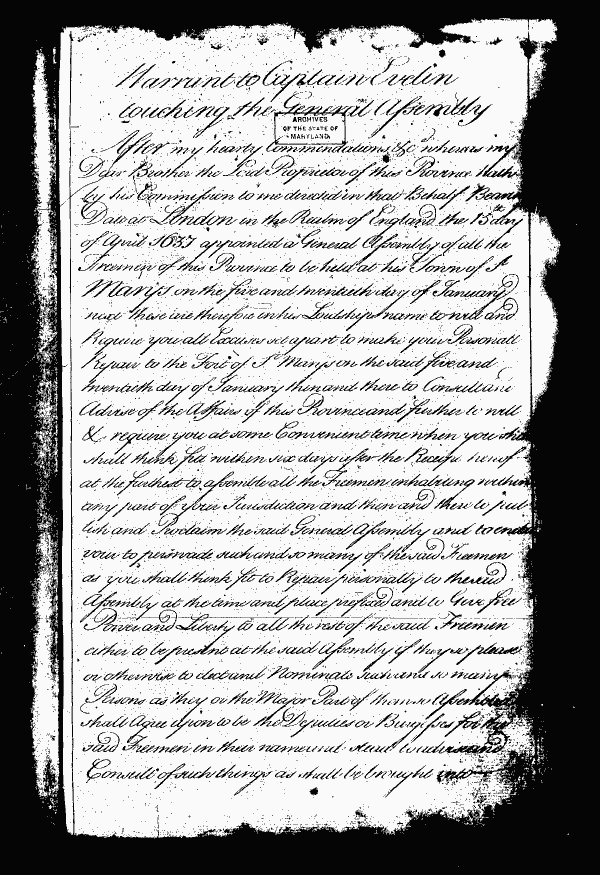 Warrant to Captain Evelin
touching the General Assembly
ARCHIVES
OF THE STATE OF
MARYLAND
After my hearty Commendations &c whereas my
Dear Brother the Lord Proprietor of this Province Hath
by his Commission to me directed in that Behalf Bearing
Date at London in the Realm of England the 15th day
of April 1637 appointed a General Assembly of all the
Freemen of this Province to be held at his Town of St
Marys on the five and twentieth day of January
next these are therefore in his Lordships name to will and
Require you all Excuses set apart to make your Personall
Repair to the Fort of St Marys on the said five and
twentieth day of January then and there to Consult and
Advise of the Affairs of this Province and further to will
& require you at some Convenient time when you
shall think fit within six days after the Receipt hereof
at the furthest to assemble all the Freemen inhabiting within
any part of your Jurisdiction and then and there to pub
lish and Proclaim the said General Assembly and to endea
vour to perswade such and so many of the said Freemen
as you shall think fit to Repair personally to the said
Assembly at the time and place prefixed and to Give free
Power and Liberty to all the rest of the said Freemen
either to be present at the said Assembly if they so please
or otherwise to elect and Nominate such and so many
Persons as they or the Major Part of them so Assembled
shall Agree upon to be the Deputies or Burgesses for the
said Freemen in their name and stead to advise and
Consult of such things as shall be brought into